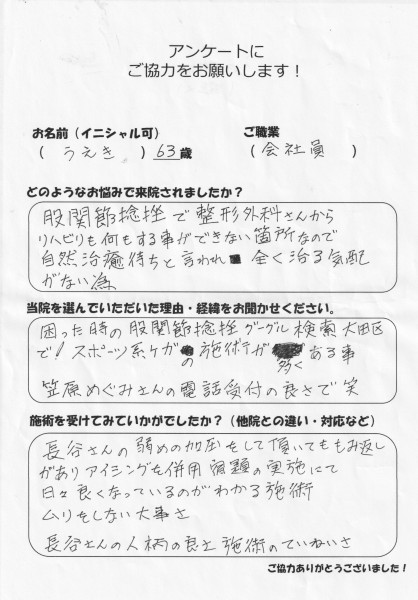 アンケートに
ご協力をお願いします！
お名前（イニシャル可）
ご職業
（うえき）63歳
（会社員）
どのようなお悩みで来院されましたか？
股関節捻挫で整形外科さんから
リハビリも何もする事ができない箇所なので
自然治癒待ちと言われ 全く治る気配
がない為
当院を選んでいただいた理由・経緯をお聞かせください。
困った時の股関節捻挫グーグル検索大田区
で！スポーツ系ケガの施術が多くある事
笠原めぐみさんの電話受付の良さで笑
施術を受けてみていかがでしたか？（他院との違い・対応など）
長谷さんの弱めの加圧をして頂いてももみ返し
がありアイシングを併用 宿題の実施にて
日々良くなっているのがわかる施術
ムリをしない大事さ
長谷さんの人柄の良さ施術のていねいさ
ご協力ありがとうございました！